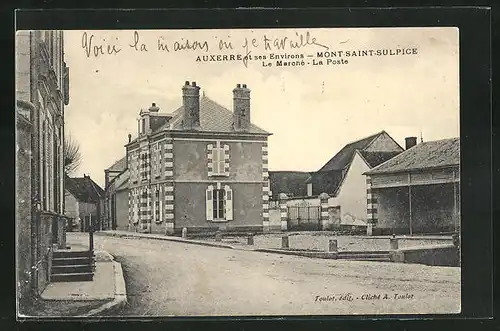 Voici la maison où je travaille
AUXERRE et ses Environs — MONT-SAINT-SULPICE
Le Marché - La Poste
Toulot, édit. - Cliché A. Toulot